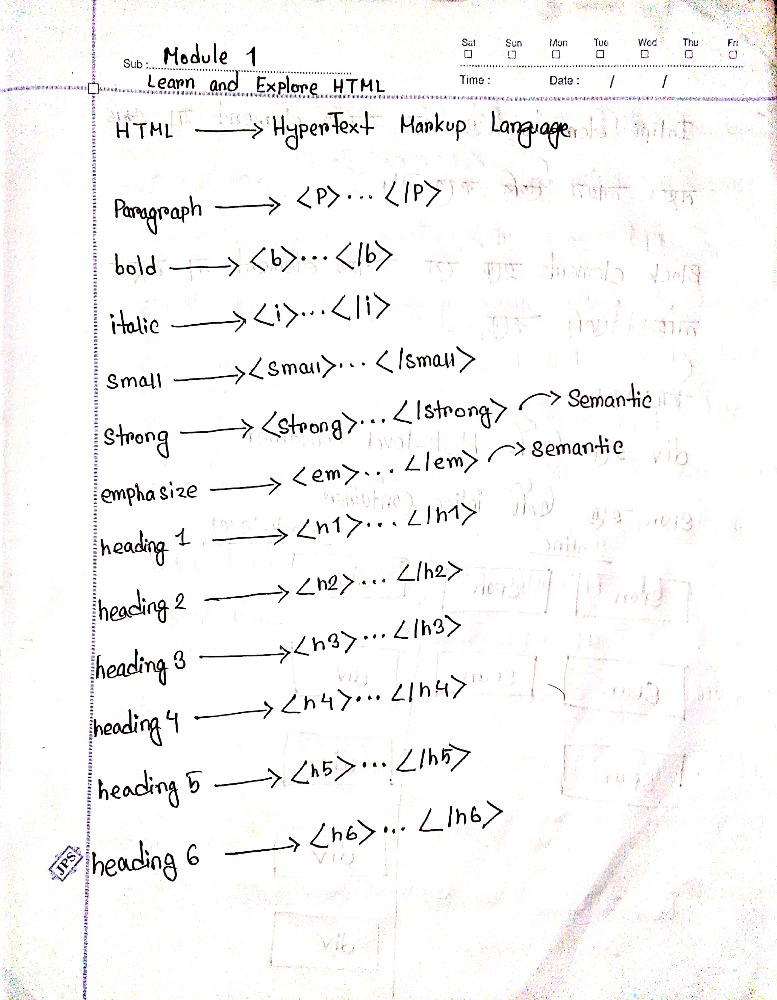 Sat Sun Mon Tue Wed Thu Fri
Sub : Module 1
Learn and Explore HTML
Time : Date : / /
HTML → HyperText Markup Language
Paragraph → <P>... </P>
bold → <b>... </b>
italic → <i>... </i>
small → <small>... </small>
strong → <strong>... </strong> → Semantic
emphasize → <em>... </em> → semantic
heading 1 → <h1>... </h1>
heading 2 → <h2>... </h2>
heading 3 → <h3>... </h3>
heading 4 → <h4>... </h4>
heading 5 → <h5>... </h5>
heading 6 → <h6>... </h6>
JPS